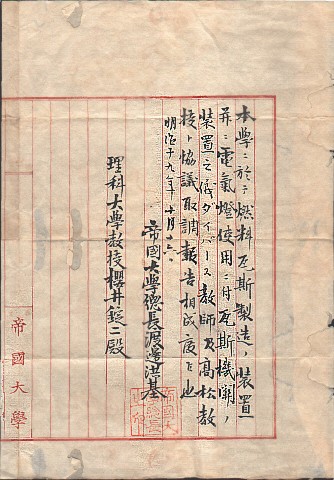 本學ニ於テ燃料瓦斯製造ノ裝置
并ニ電氣燈使用ニ付瓦斯機關ノ
裝置之儀ダイバース教師及高松教
授ト協議取調報告相成度候也
明治十九年十月十六日
帝國大學總長渡邊洪基
理科大學教授櫻井錠二殿
帝國大學